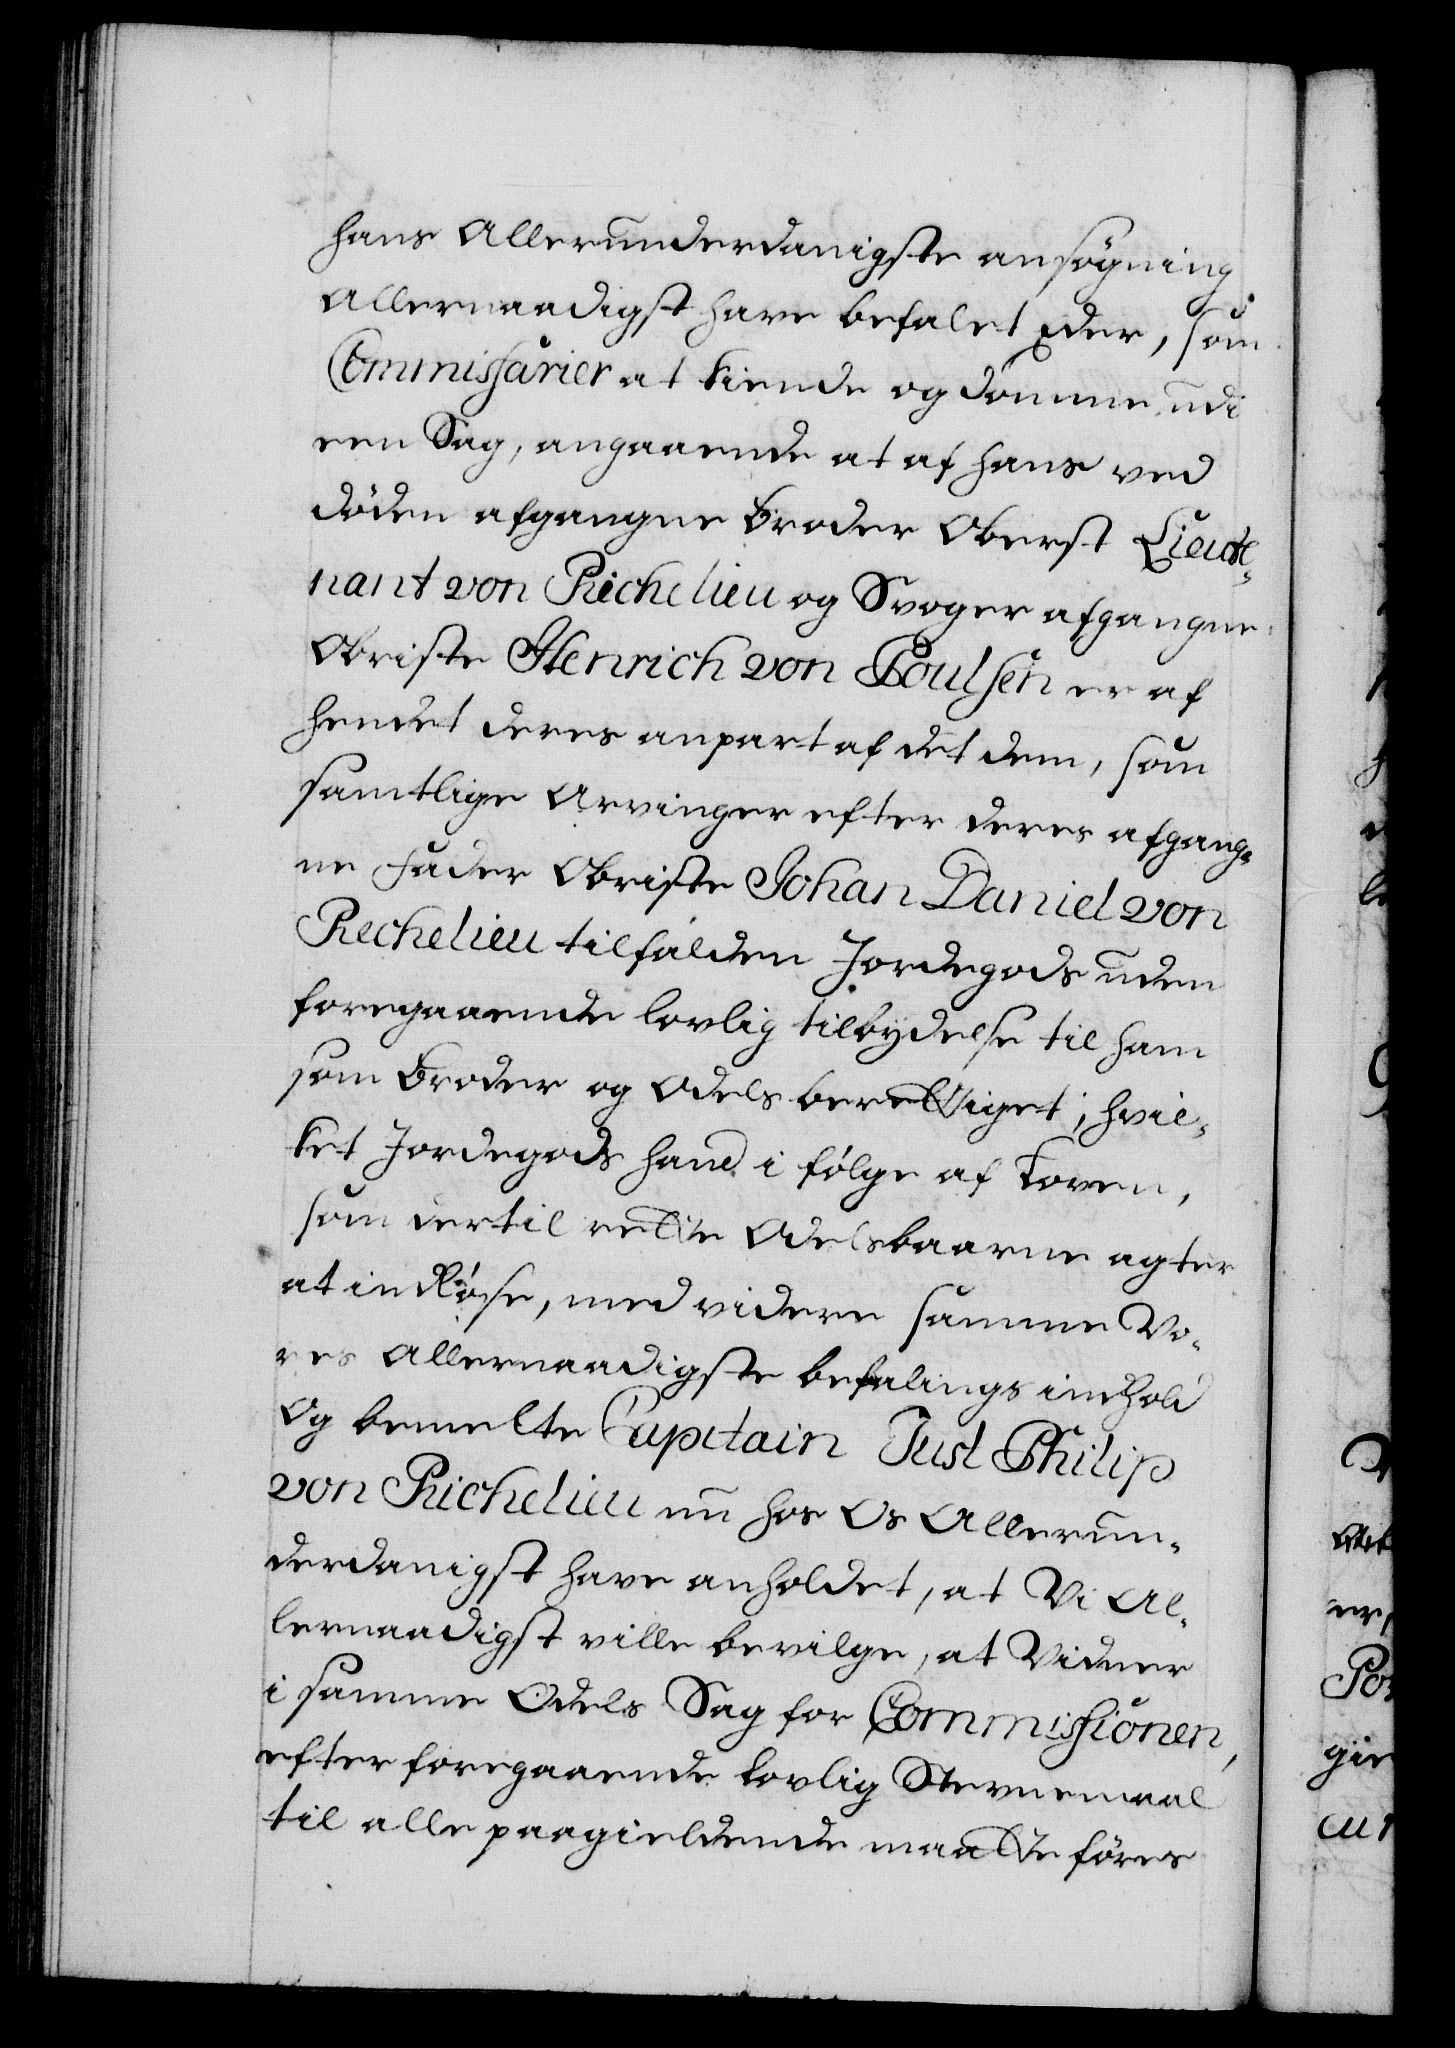 hans Allerunderdanigste ansøgning
Allernaadigst have befalet Eder, som
Commissarier at kiende og dømme udi
een Sag, angaaende at af hans ved
døden afgangne Broder Oberst Lieute-
nant von Richelieu og Svoger afgangne
Obriste Henrich von Poulsen er af
hendet deres anpart af det dem, som
samtlige Arvinger efter deres afgang-
ne Fader Obriste Johan Daniel von
Rechelieu tilfalden Jordegods uden
foregaaende lovlig tilbydelse til ham
som Broder og Odels berettiget; hvil-
ket Jordegods hand i følge af Loven,
som dertil rette Odelsbaarne agter
at indløse, med videre samme Vo-
res Allernaadigste befalings indhold
Og bemelte Capitain Just Philip
von Richelieu nu hos Os Allerun-
derdanigst have anholdet, at Vi Al-
lernaadigst ville bevilge, at Vidner
i samme Odels Sag for Commissionen,
efter foregaaende lovlig Stevnemaal
til alle paagieldende maatte føres